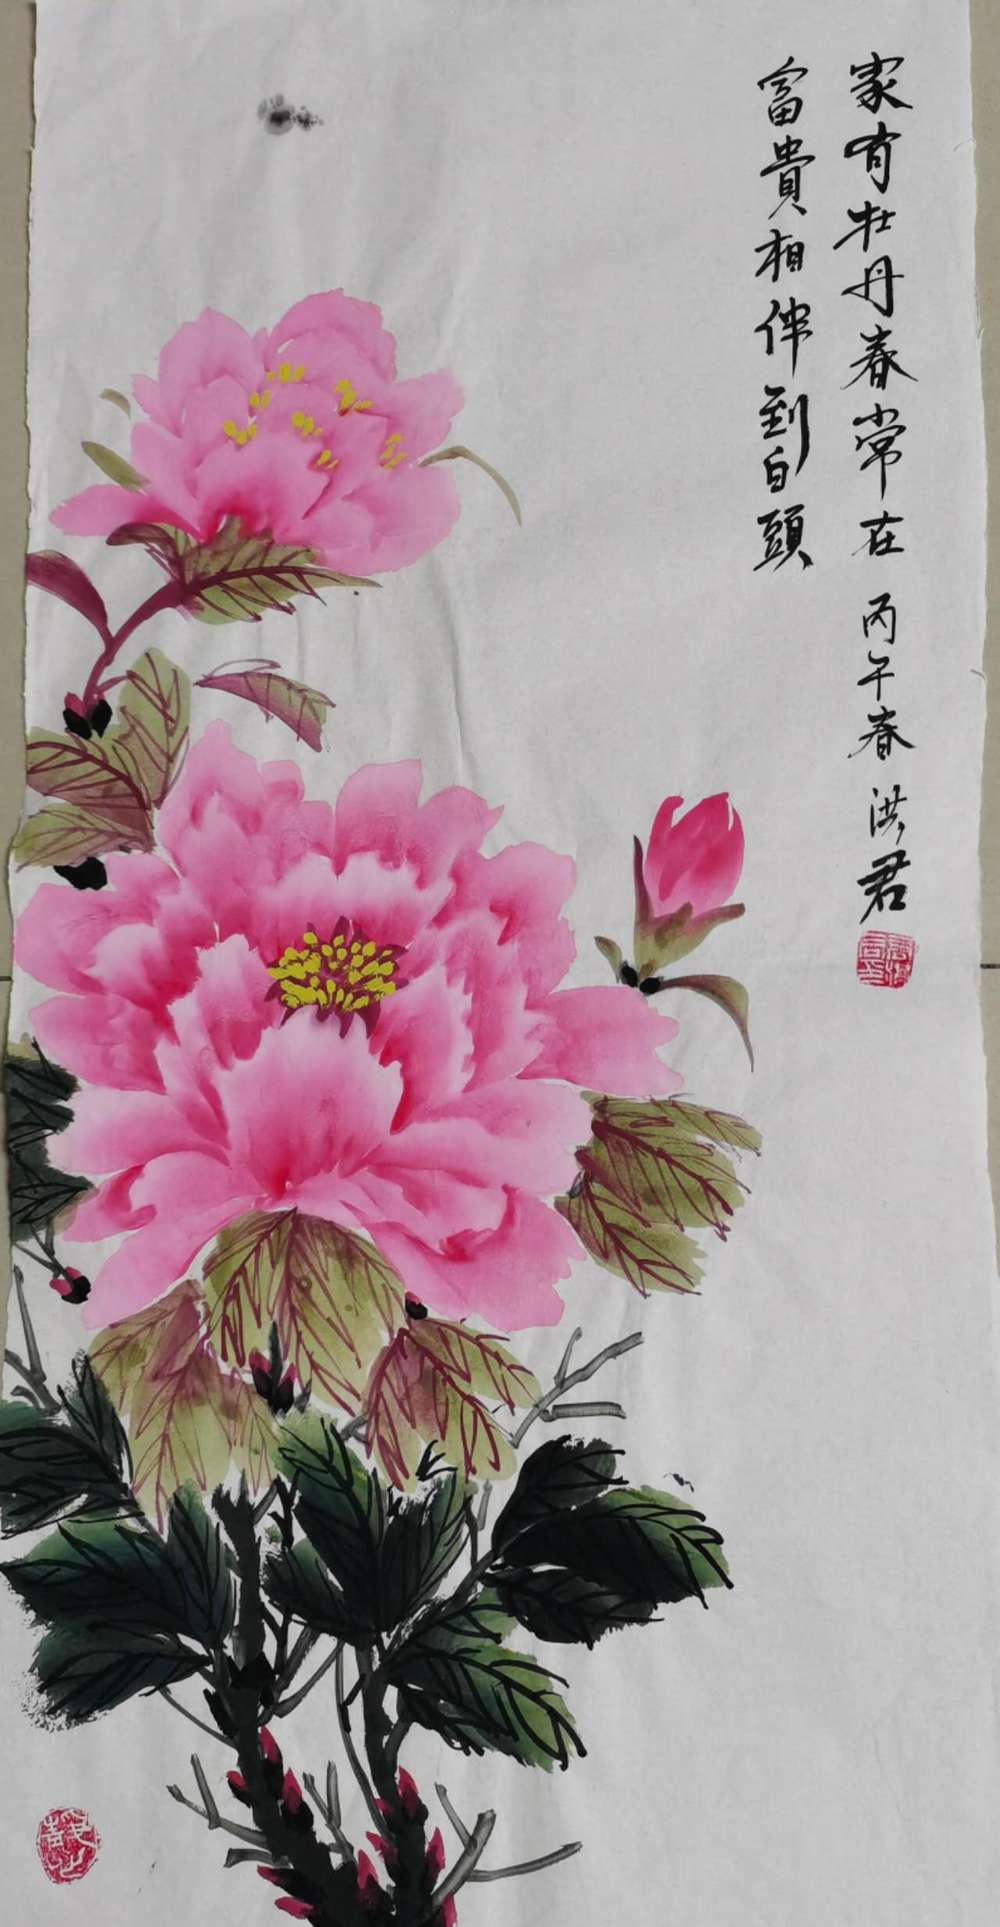 家有牡丹春常在 丙午春 洪君
富貴相伴到白頭